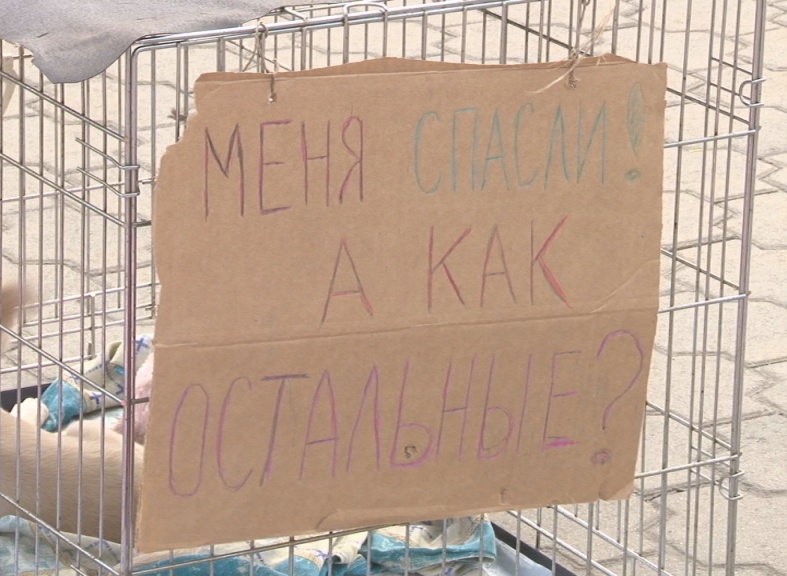 МЕНЯ СПАСЛИ!
А КАК
ОСТАЛЬНЫЕ?